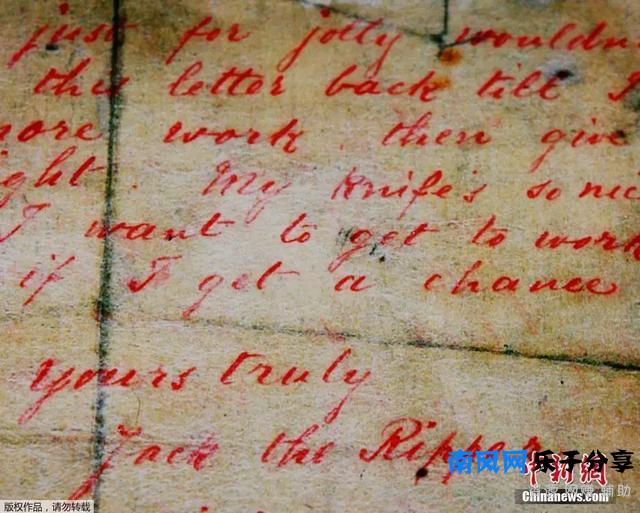 just for jolly wouldn
this letter back till I
more work. then give
ght. My Knife's so nic
I want to get to work
if I get a chance
Yours truly
Jack the Ripper
南风网乐子分享
中新网
辅助
Chinanews.com
版权作品，请勿转载